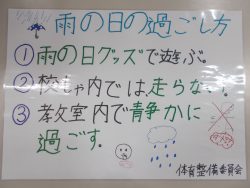 雨の日の過ごし方
①雨の日グッズで遊ぶ。
②校しゃ内では走らない。
③教室内で静かに
過ごす。
体育整備委員会